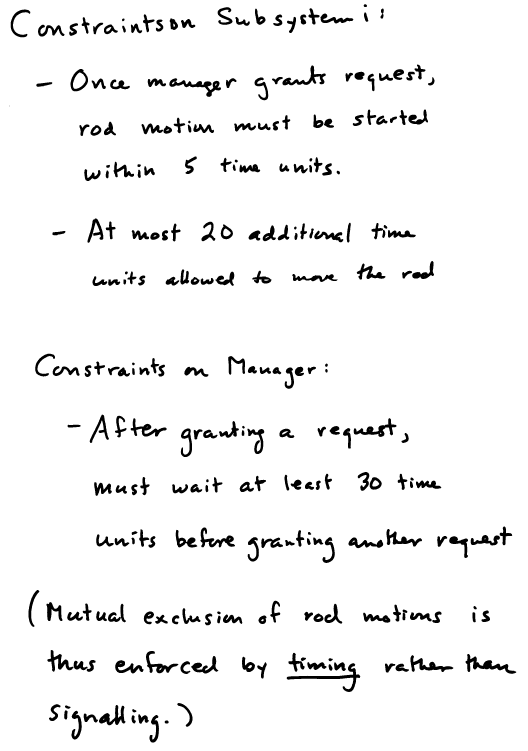 Constraints on Subsystem i:
- Once manager grants request,
rod motion must be started
within 5 time units.
- At most 20 additional time
units allowed to move the rod
Constraints on Manager:
- After granting a request,
must wait at least 30 time
units before granting another request
(Mutual exclusion of rod motions is
thus enforced by timing rather than
signalling.)